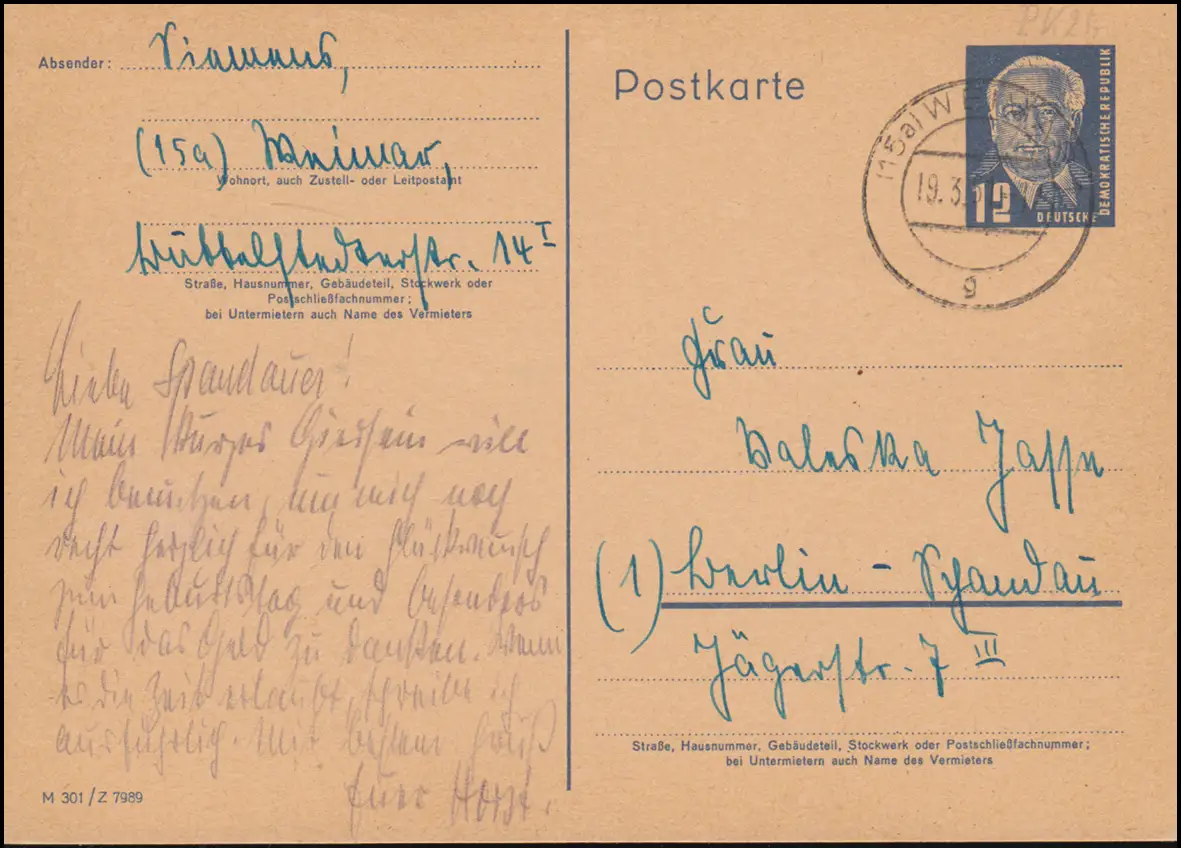 Absender: Siemens,
(15a) Weimar,
Wohnort, auch Zustell- oder Leitpostamt
Buttelstedterstr. 14 I
Straße, Hausnummer, Gebäudeteil, Stockwerk oder
Postschließfachnummer;
bei Untermietern auch Name des Vermieters
Liebe Spandauer!
Mein kurzes Hiersein will
ich benutzen, um mich noch
recht herzlich für den Glückwunsch
zum Geburtstag und besonders
für das Geld zu danken. Wenn
es die Zeit erlaubt, schreibe ich
ausführlich. Mit bestem Gruß
Euer Horst.
M 301/Z 7989
PK2
Postkarte
(15a) WEIMAR
19. 3. 5
g
12
DEUTSCHE
DEMOKRATISCHE REPUBLIK
Frau
Valeska Jasse
(1) Berlin - Spandau
Jägerstr. 7 III
Straße, Hausnummer, Gebäudeteil, Stockwerk oder Postschließfachnummer;
bei Untermietern auch Name des Vermieters